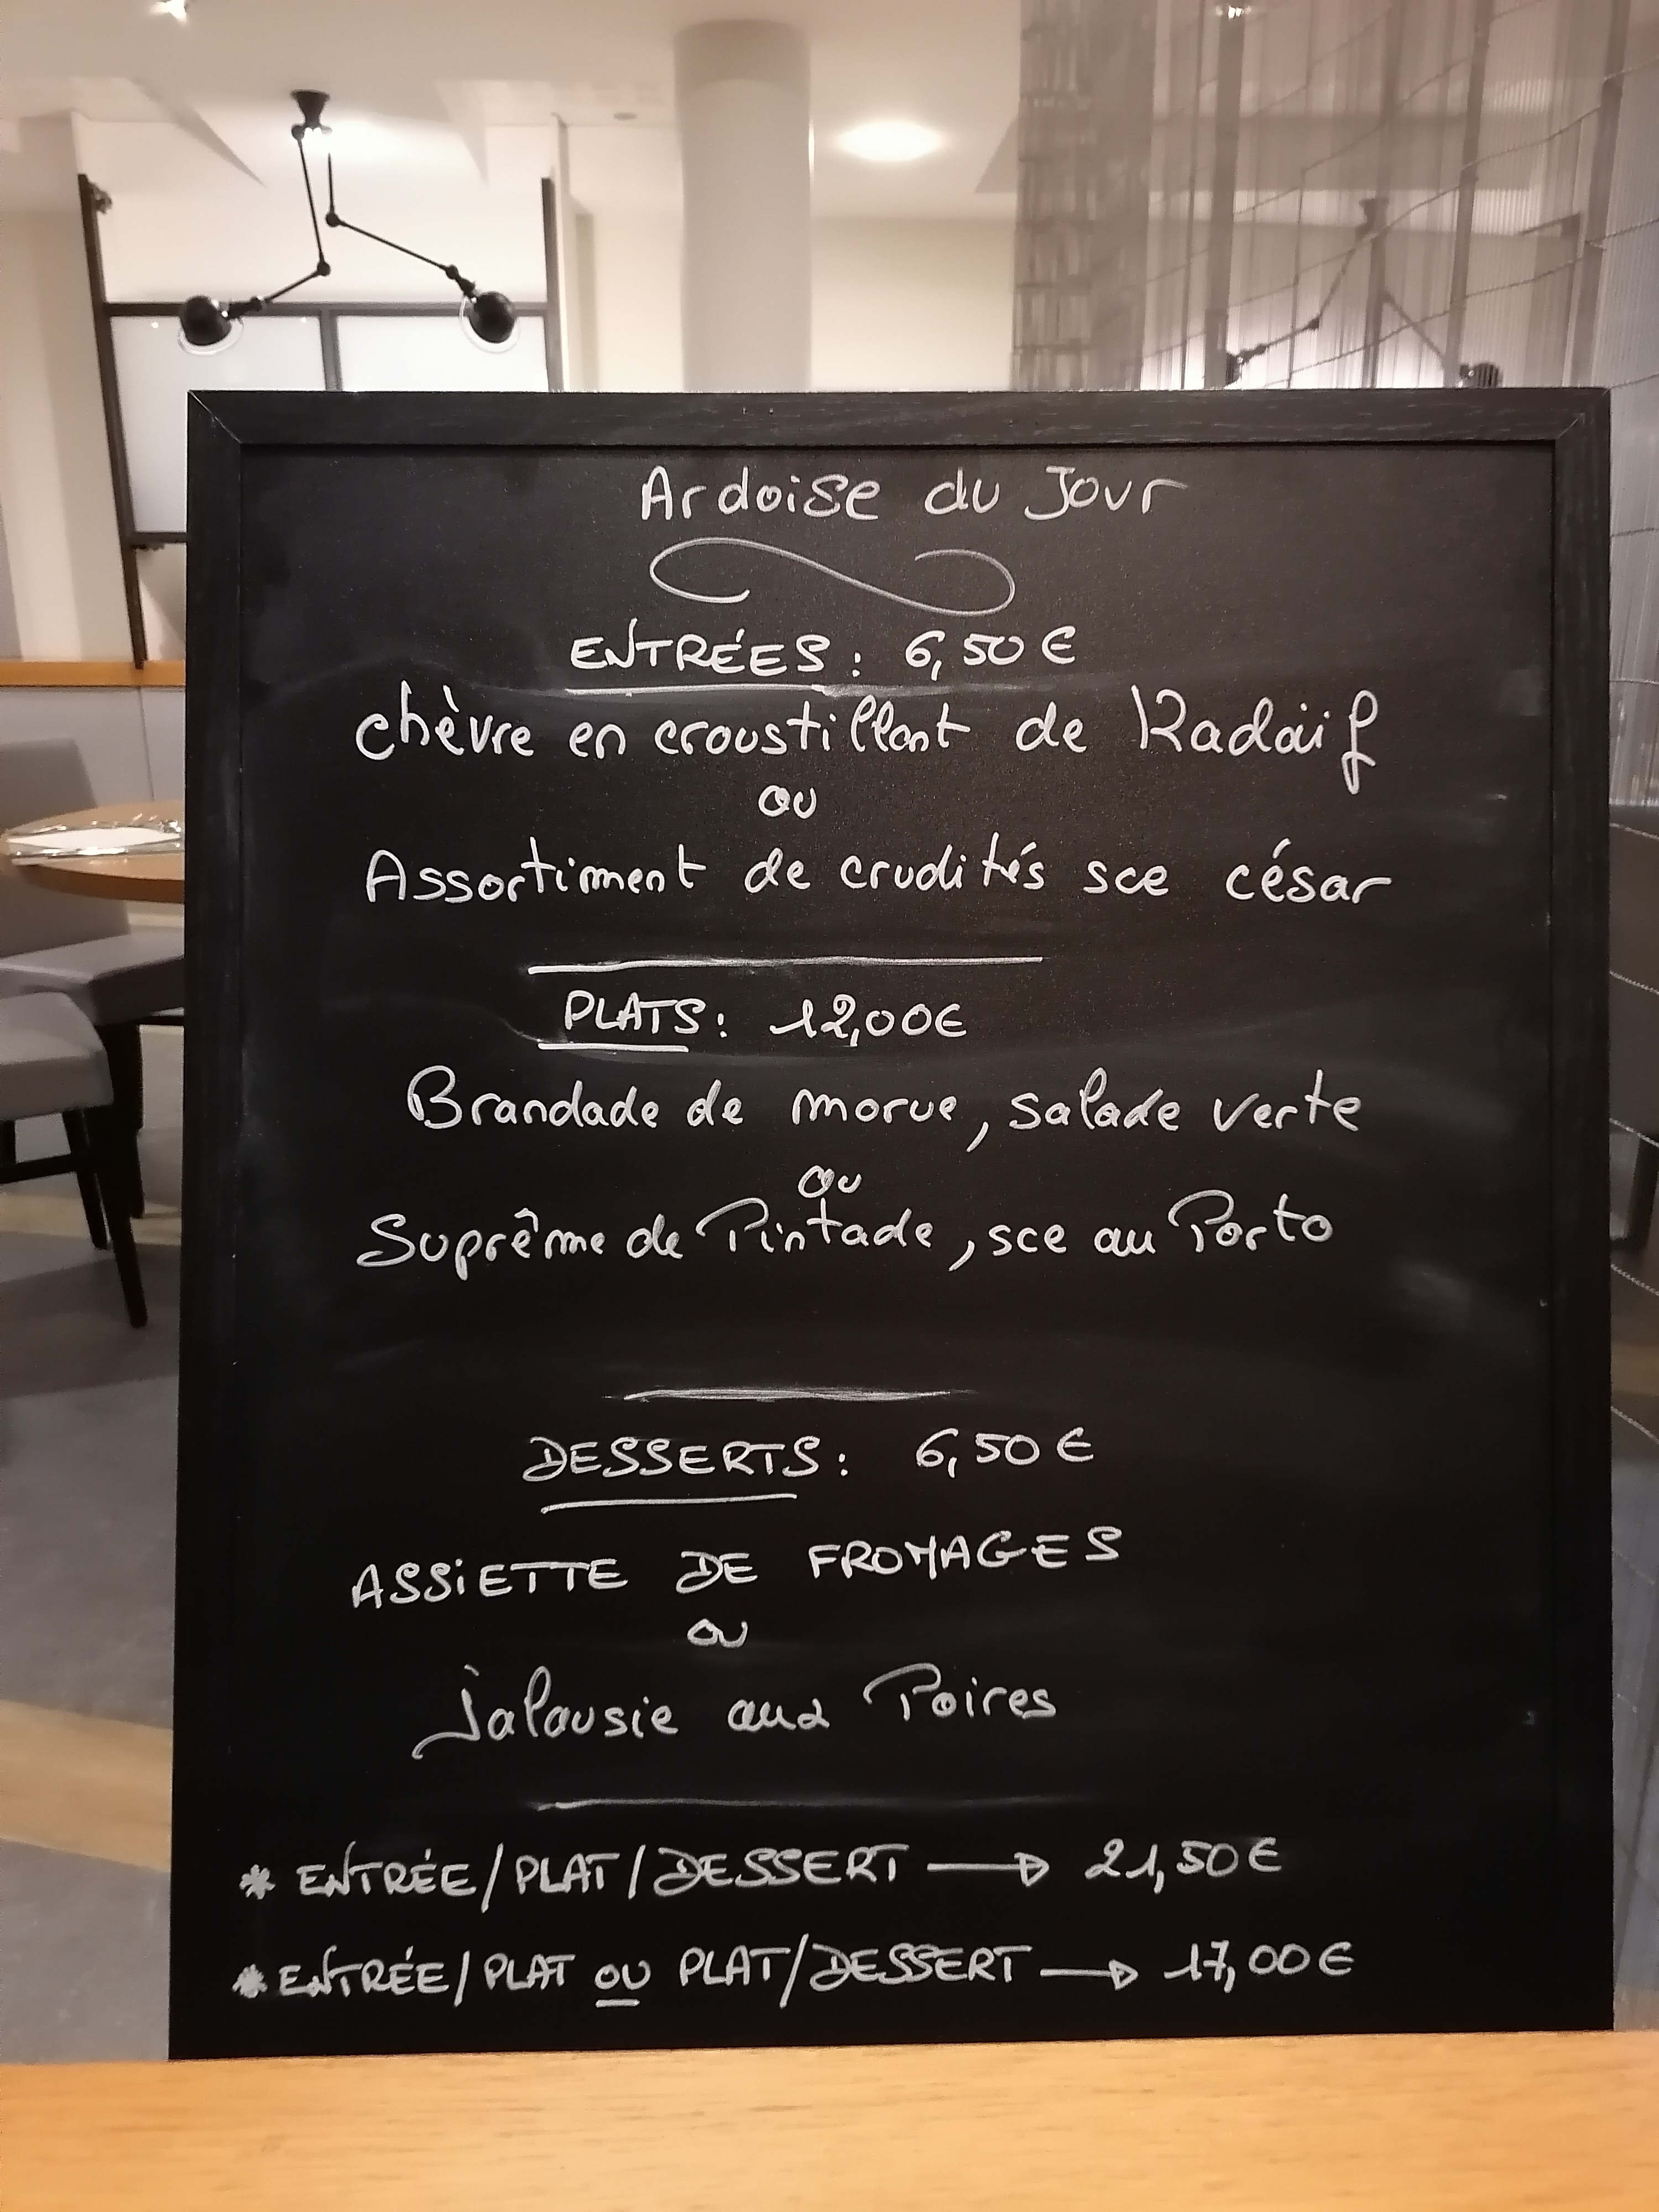 Ardoise du Jour
ENTRÉES : 6,50€
chèvre en croustillant de Kadaïf
ou
Assortiment de crudités sce césar
PLATS : 12,00€
Brandade de morue, salade verte
ou
Suprême de Pintade, sce au Porto
DESSERTS : 6,50€
ASSIETTE DE FROMAGES
ou
jalousie aux Poires
* ENTRÉE/PLAT/DESSERT → 21,50€
* ENTRÉE/PLAT OU PLAT/DESSERT → 17,00€